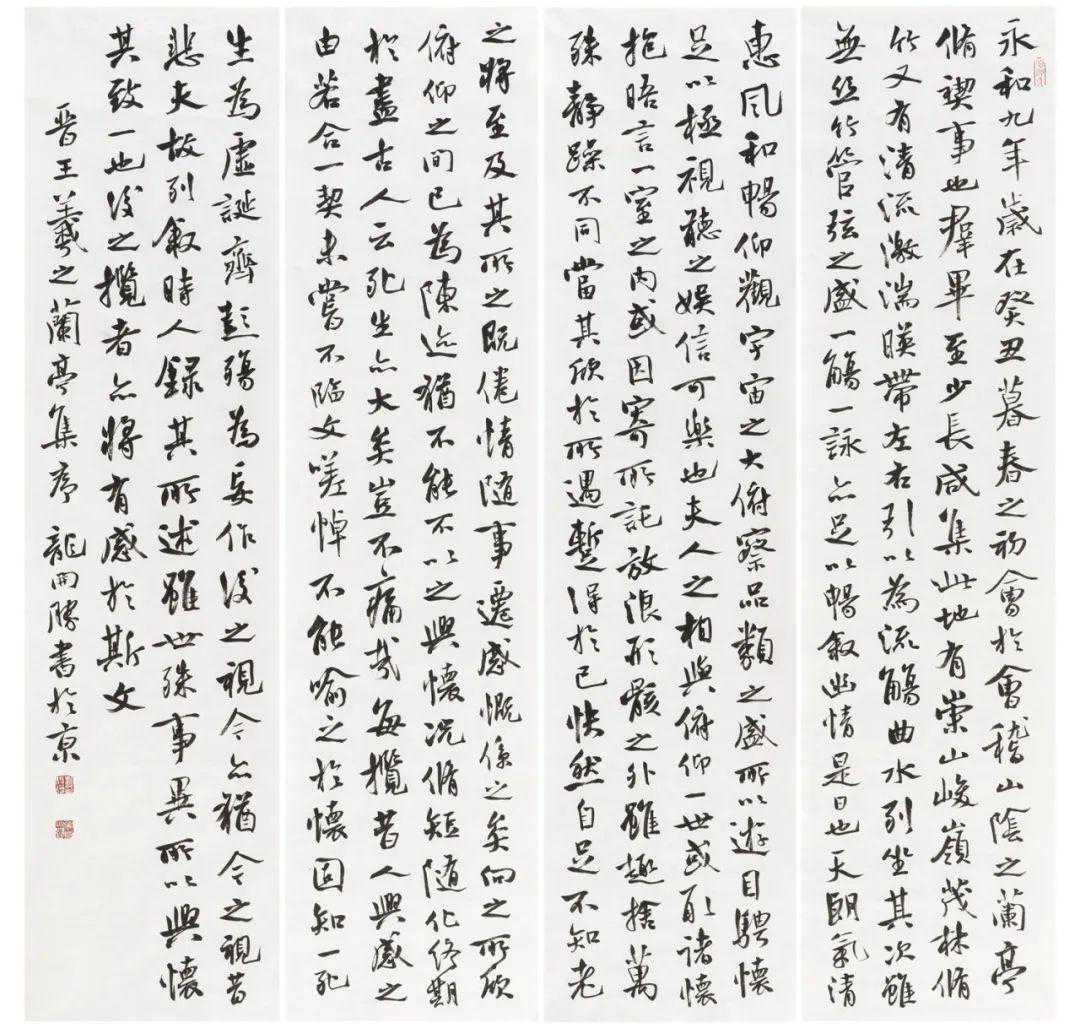 永和九年歲在癸丑暮春之初會於會稽山陰之蘭亭
脩禊事也羣畢至少長咸集此地有崇山峻嶺茂林脩
竹又有清流激湍暎帶左右引以為流觴曲水列坐其次雖
無絲竹管弦之盛一觴一詠亦足以暢敘幽情是日也天朗氣清
惠風和暢仰觀宇宙之大俯察品類之盛所以遊目騁懷
足以極視聽之娛信可樂也夫人之相與俯仰一世或取諸懷
抱晤言一室之內或因寄所託放浪形骸之外雖趣捨萬
殊靜躁不同當其欣於所遇暫得於己快然自足不知老
之將至及其所之既倦情隨事遷感慨係之矣向之所欣
俯仰之間已為陳迹猶不能不以之興懷況脩短隨化終期
於盡古人云死生亦大矣豈不痛哉每攬昔人興感之
由若合一契未嘗不臨文嗟悼不能喻之於懷固知一死
生為虛誕齊彭殤為妄作後之視今亦猶今之視昔
悲夫故列敘時人錄其所述雖世殊事異所以興懷
其致一也後之攬者亦將有感於斯文
晉王羲之蘭亭集序 龍開勝書於京